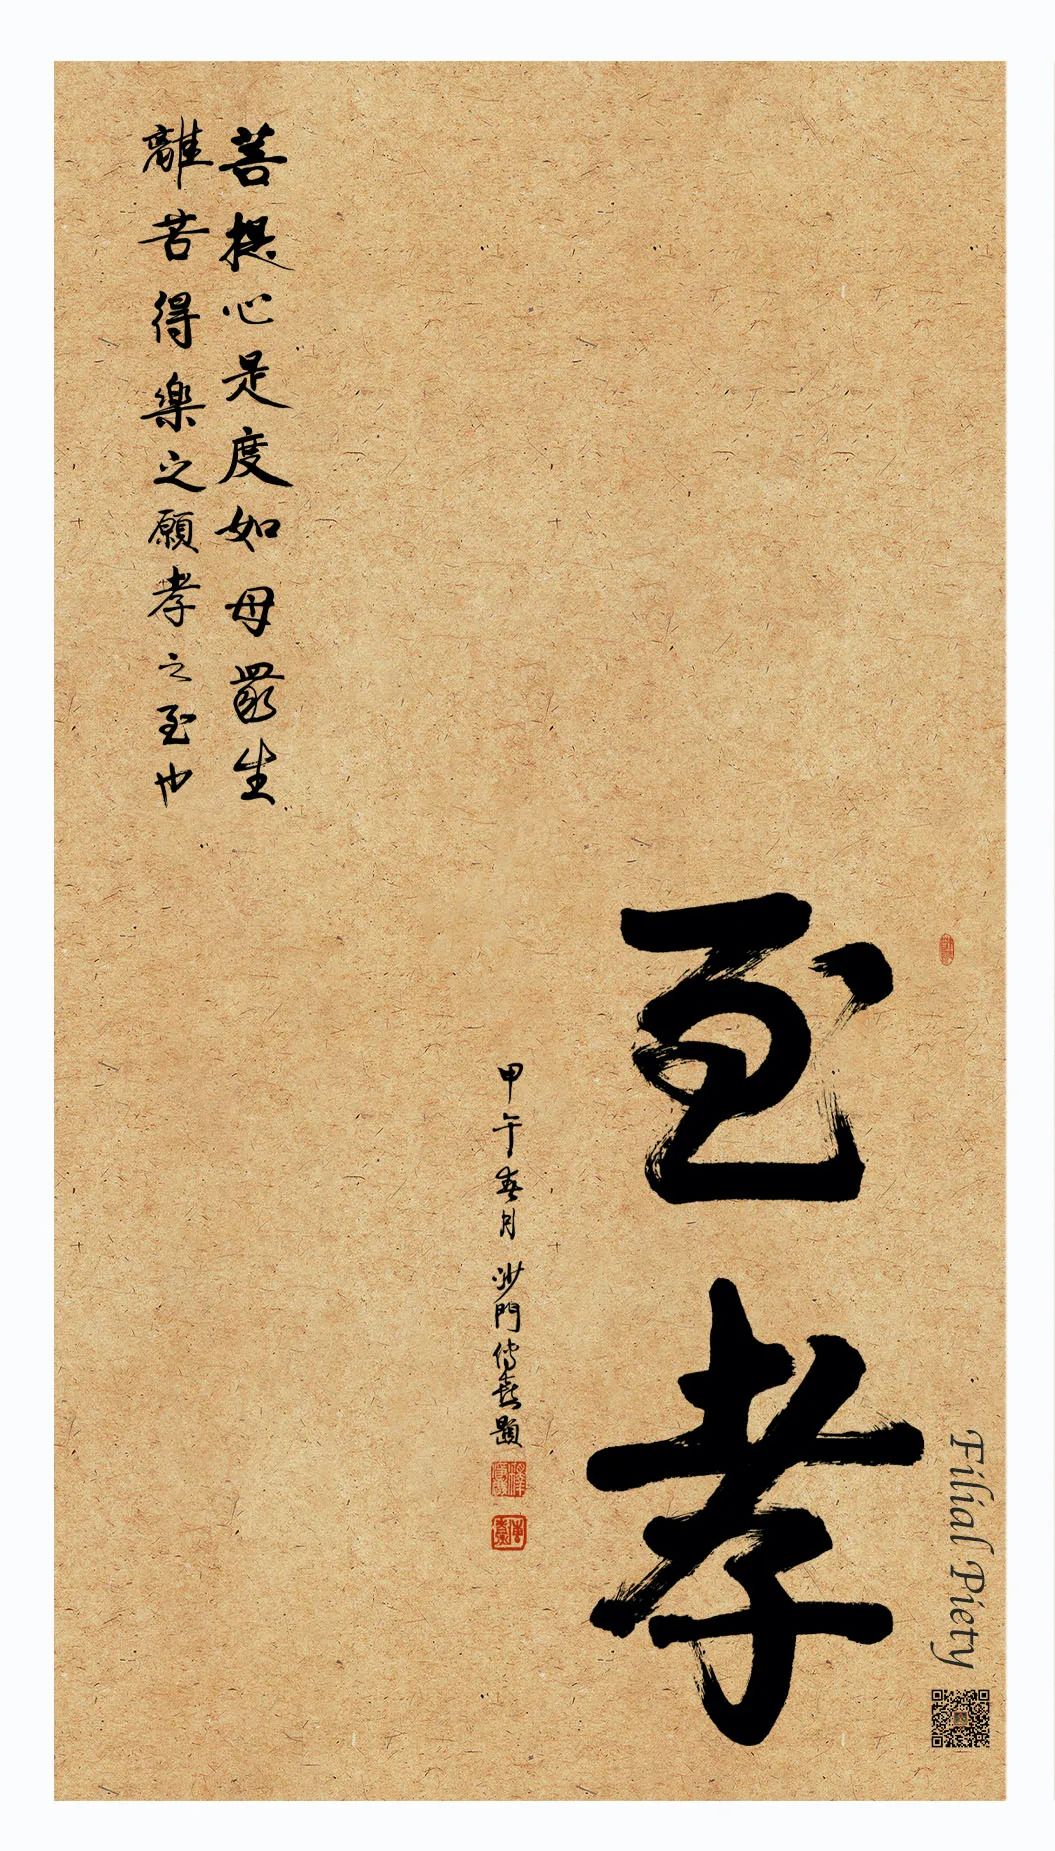 至孝
Filial Piety
甲午春月 沙門傳喜題
菩提心是度如母眾生
離苦得樂之願孝之至也